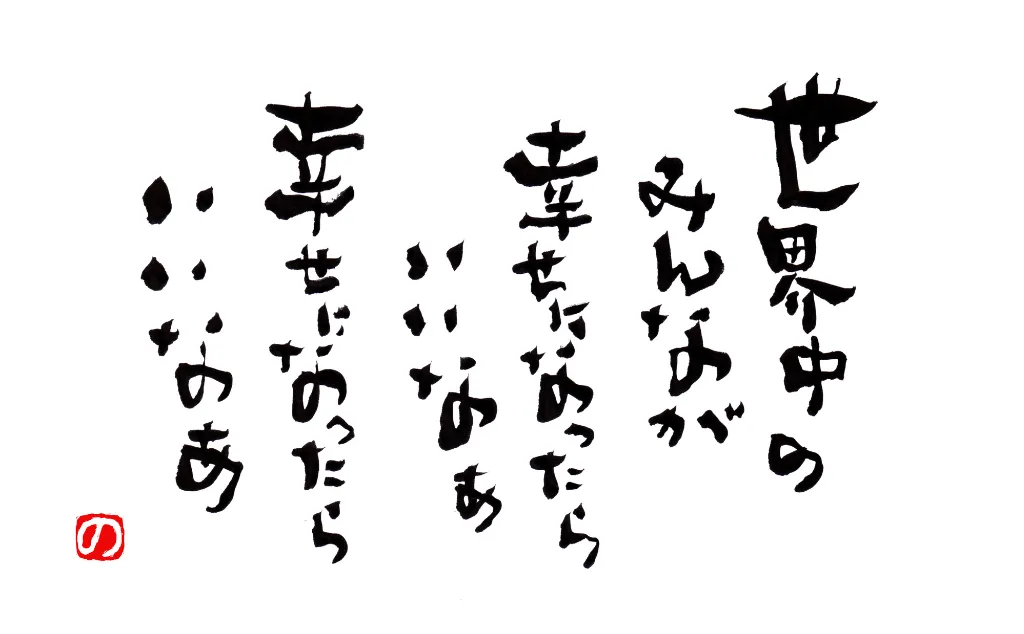 世界中の
みんなが
幸せになったら
いいなぁ
幸せになったら
いいなあ
の